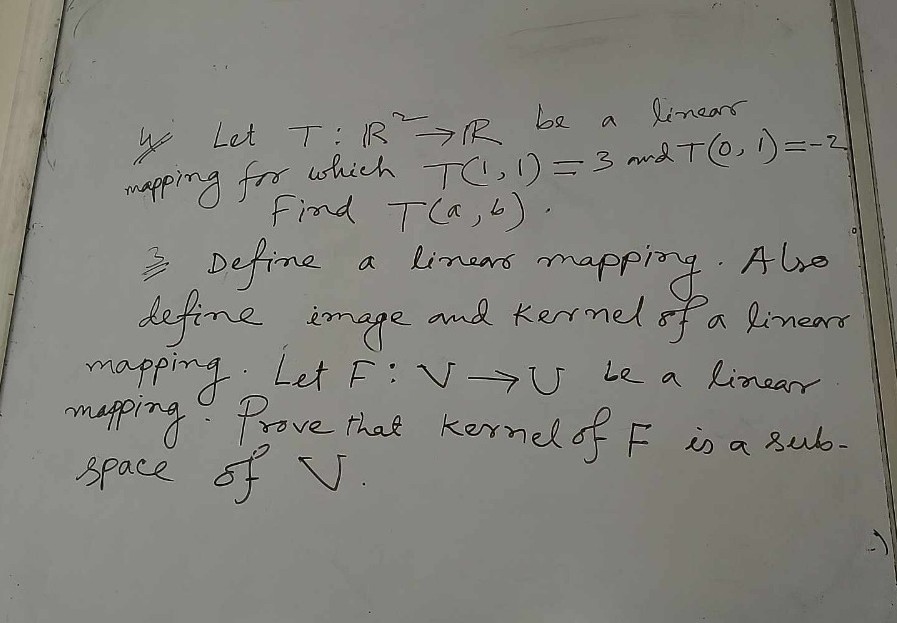 4. Let T : R² → R be a linear
mapping for which T(1, 1) = 3 and T(0, 1) = -2
Find T(a, b).
3. Define a linear mapping. Also
define image and kernel of a linear
mapping. Let F : V → U be a linear
mapping. Prove that kernel of F is a sub-
space of V.